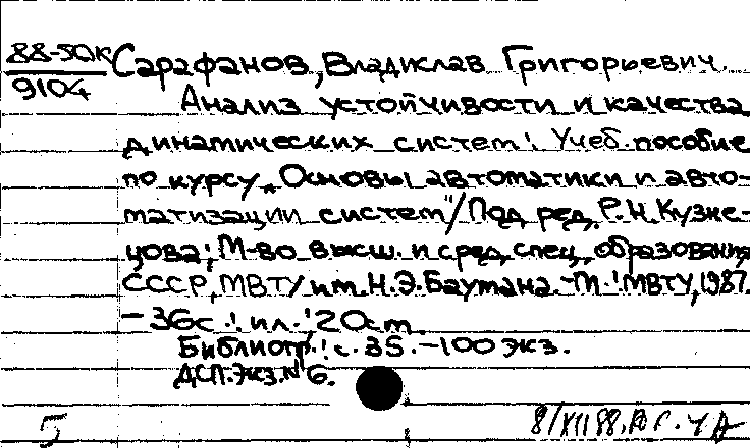 88-50к Сарафанов, Владислав Григорьевич.
9104
Анализ устойчивости и качества
динамических систем: Учеб. пособие
по курсу „Основы автоматики и авто-
матизации систем"/Под ред. Р.Н. Кузне-
цова; М-во высш. и сред. спец. образования
СССР, МВТУ им. Н.Э. Баумана. -М.: МВТУ, 1987.
- 36с.: ил.; 20см.
Библиогр.: с. 35. -100 экз.
ДСП. Экз. № 6.
5 8/XII 88.